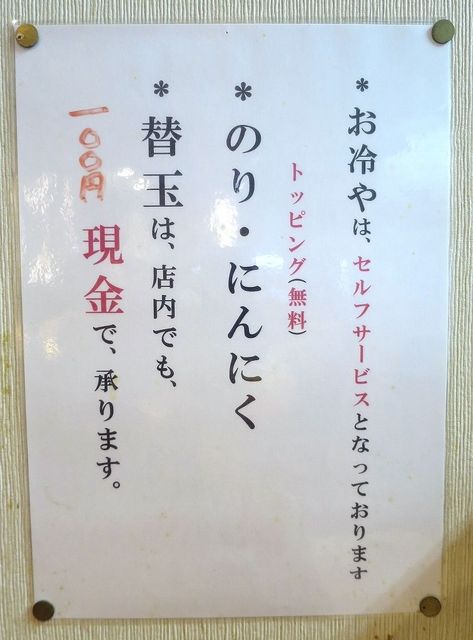 *お冷やは、セルフサービスとなっております
トッピング(無料)
*のり・にんにく
*替玉は、店内でも、
一〇〇円
現金で、承ります。